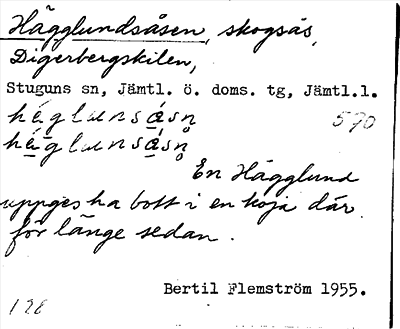 Hägglundsåsen, skogsås,
Digerbergskilen,
Stuguns sn, Jämtl. ö. doms. tg, Jämtl.l.
590
En Hägglund
uppges ha bott i en koja där
för länge sedan.
Bertil Flemström 1955.